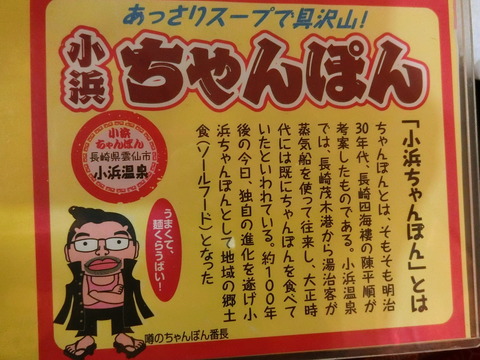 あっさりスープで具沢山!
小浜
ちゃんぽん
小浜
ちゃんぽん
長崎県雲仙市
小浜温泉
「小浜ちゃんぽん」とは
ちゃんぽんとは、そもそも明治
30年代、長崎四海樓の陳平順が
考案したものである。小浜温泉
では、長崎茂木港から湯治客が
蒸気船を使って往来し、大正時
代には既にちゃんぽんを食べて
いたといわれている。約100年
後の今日、独自の進化を遂げ小
浜ちゃんぽんとして地域の郷土
食(ソールフード)となった
うまくて、
麺くらうばい!
噂のちゃんぽん番長